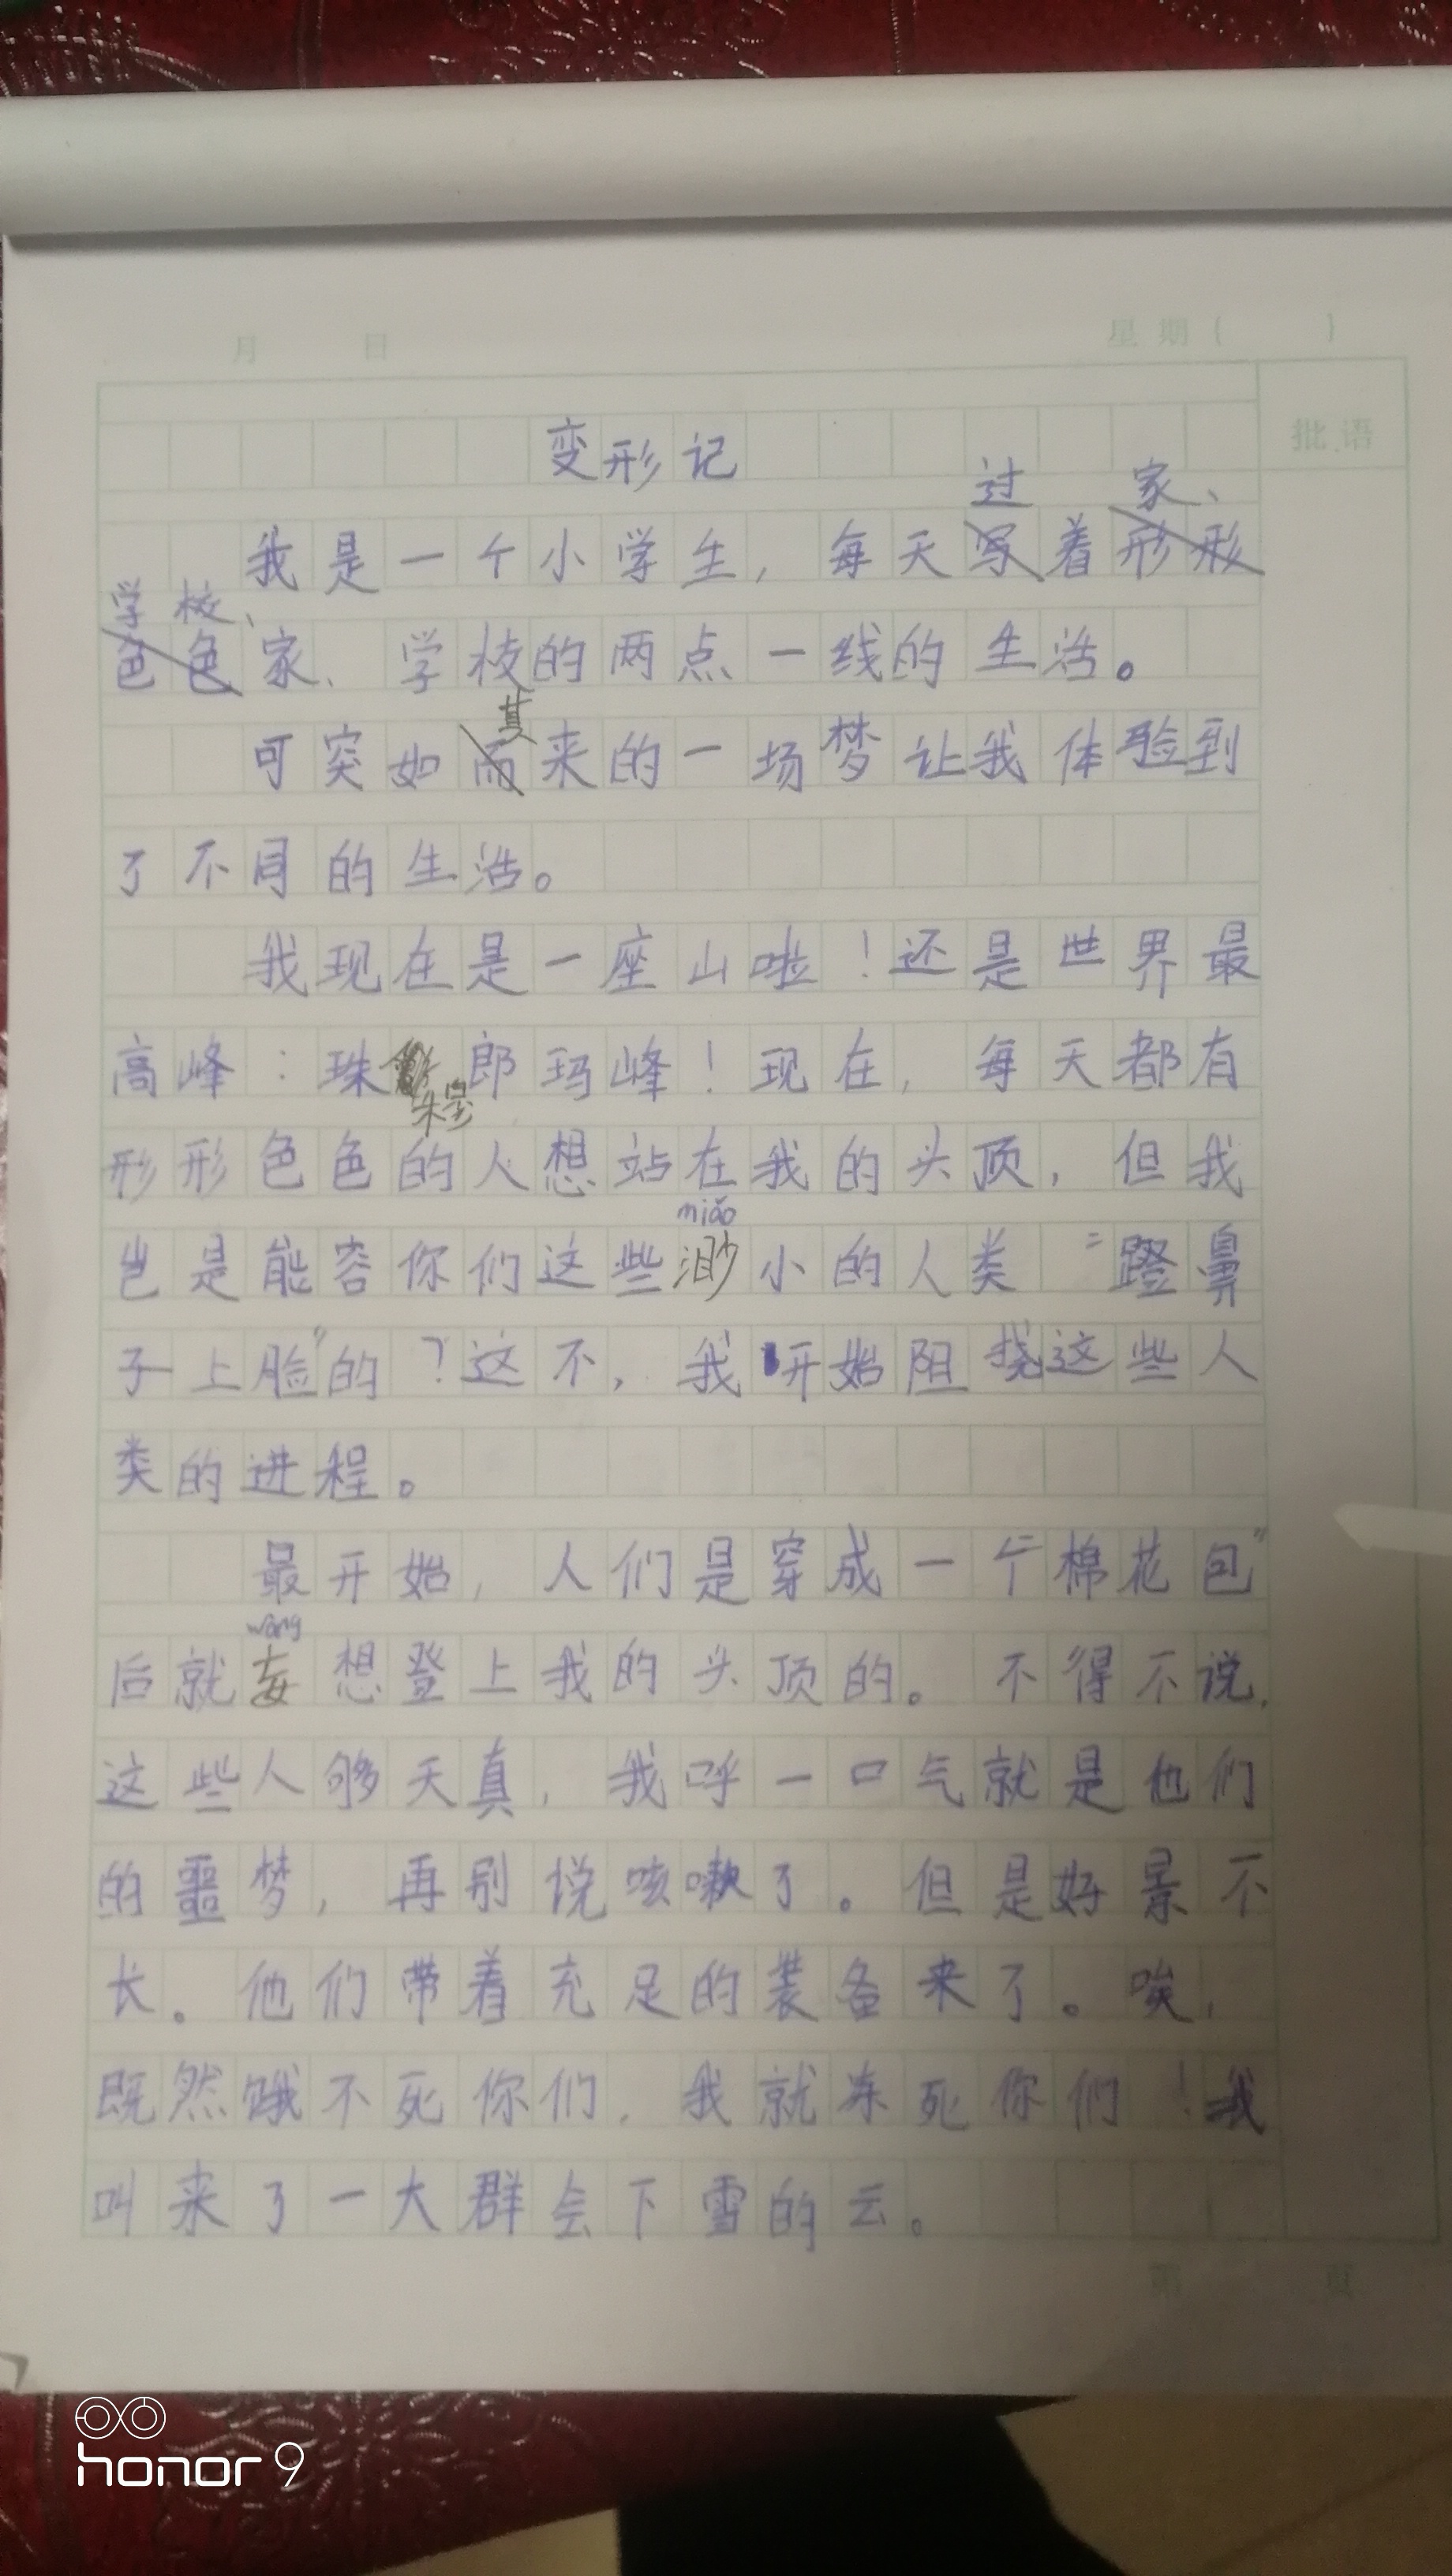 月 日 星期( )
批语
变形记
过 家、
我是一个小学生,每天写着形形
学校、
色色家、学校的两点一线的生活。
其
可突如而来的一场梦让我体验到
了不同的生活。
我现在是一座山啦!还是世界最
高峰:珠郎玛峰!现在,每天都有
形形色色的人想站在我的头顶,但我
miǎo
岂是能容你们这些渺小的人类“蹬鼻
子上脸”的?这不,我开始阻挠这些人
类的进程。
最开始,人们是穿成一个“棉花包”
wàng
后就妄想登上我的头顶的。不得不说,
这些人够天真,我呼一口气就是他们
的噩梦,再别说咳嗽了。但是好景不
长。他们带着充足的装备来了。唉,
既然饿不死你们,我就冻死你们!我
叫来了一大群会下雪的云。
第 页
honor 9